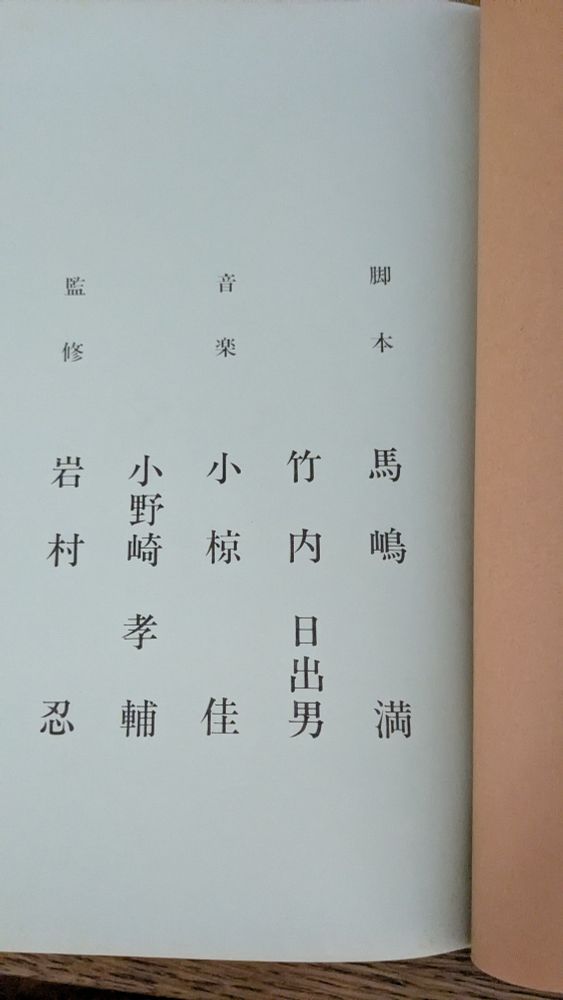 脚本　馬嶋　満
竹内日出男
音楽　小椋　佳
小野崎孝輔
監修　岩村　忍